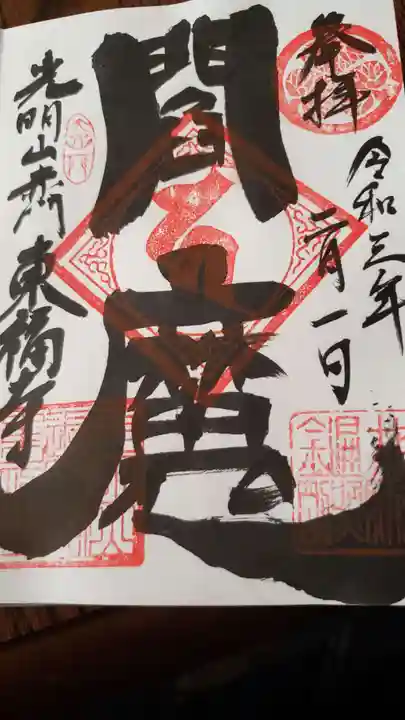 奉拝
令和三年
二月一日
閻魔
光明山赤門東福寺